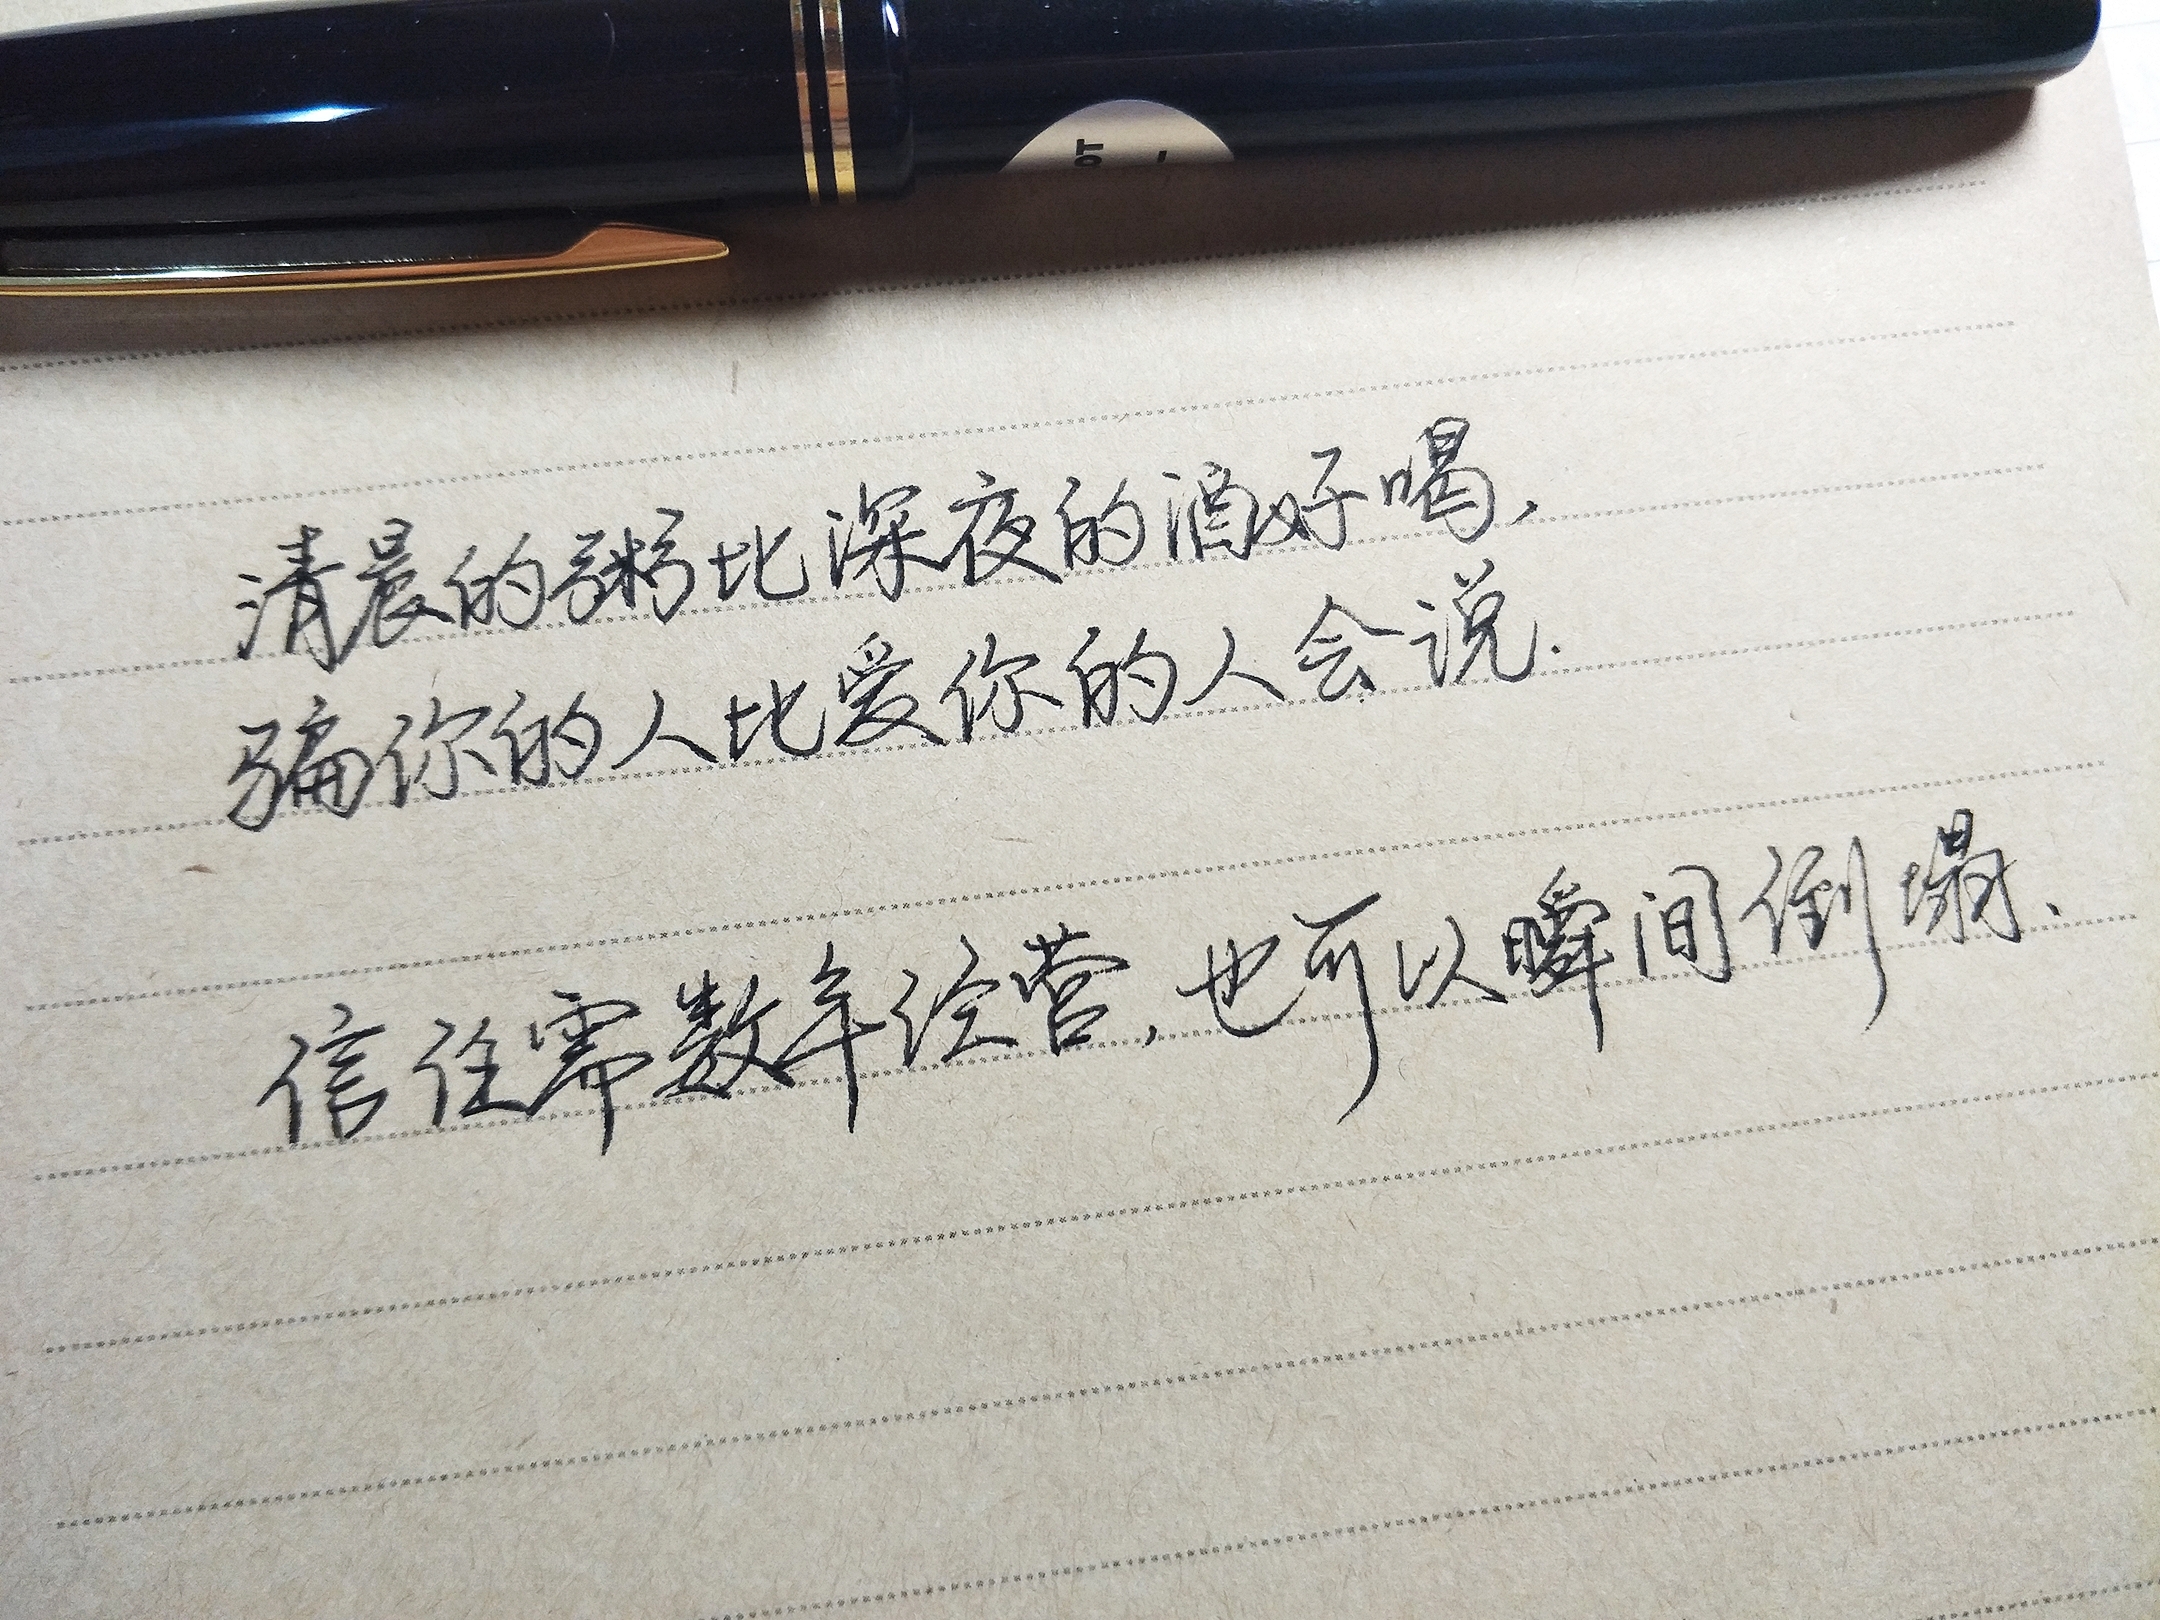 OT
清晨的粥比深夜的酒好喝，
骗你的人比爱你的人会说.
信任需数年经营，也可以瞬间倒塌.